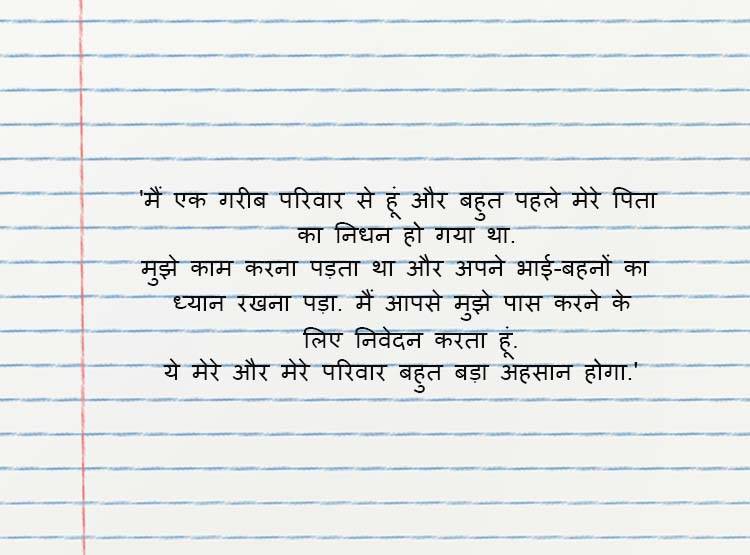 'मैं एक गरीब परिवार से हूं और बहुत पहले मेरे पिता
का निधन हो गया था.
मुझे काम करना पड़ता था और अपने भाई-बहनों का
ध्यान रखना पड़ा. मैं आपसे मुझे पास करने के
लिए निवेदन करता हूं.
ये मेरे और मेरे परिवार बहुत बड़ा अहसान होगा.'